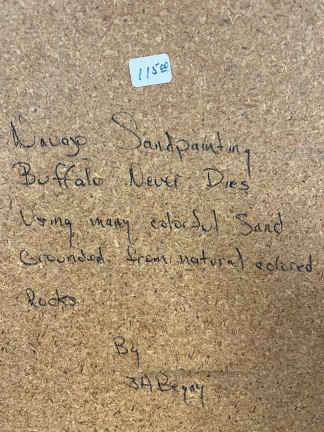 115.00
Navajo Sandpainting
Buffalo Never Dies
Using many colorful Sand
Grounded from natural colored
Rocks
By
JABegay